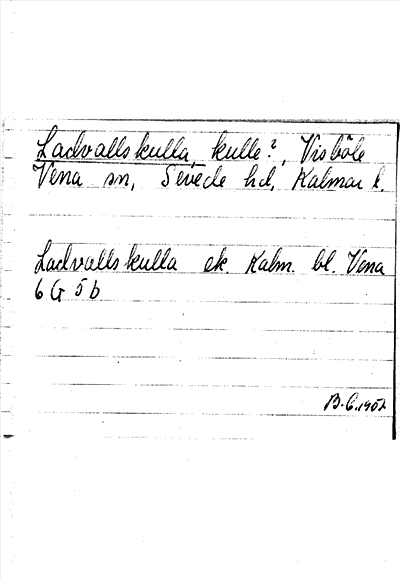 Ladvallskulla, kulle?, Visböle
Vena sn, Sevede hd, Kalmar l.
Ladvallskulla ek. Kalm. bl. Vena
6 G 5 b
B.G. 1952